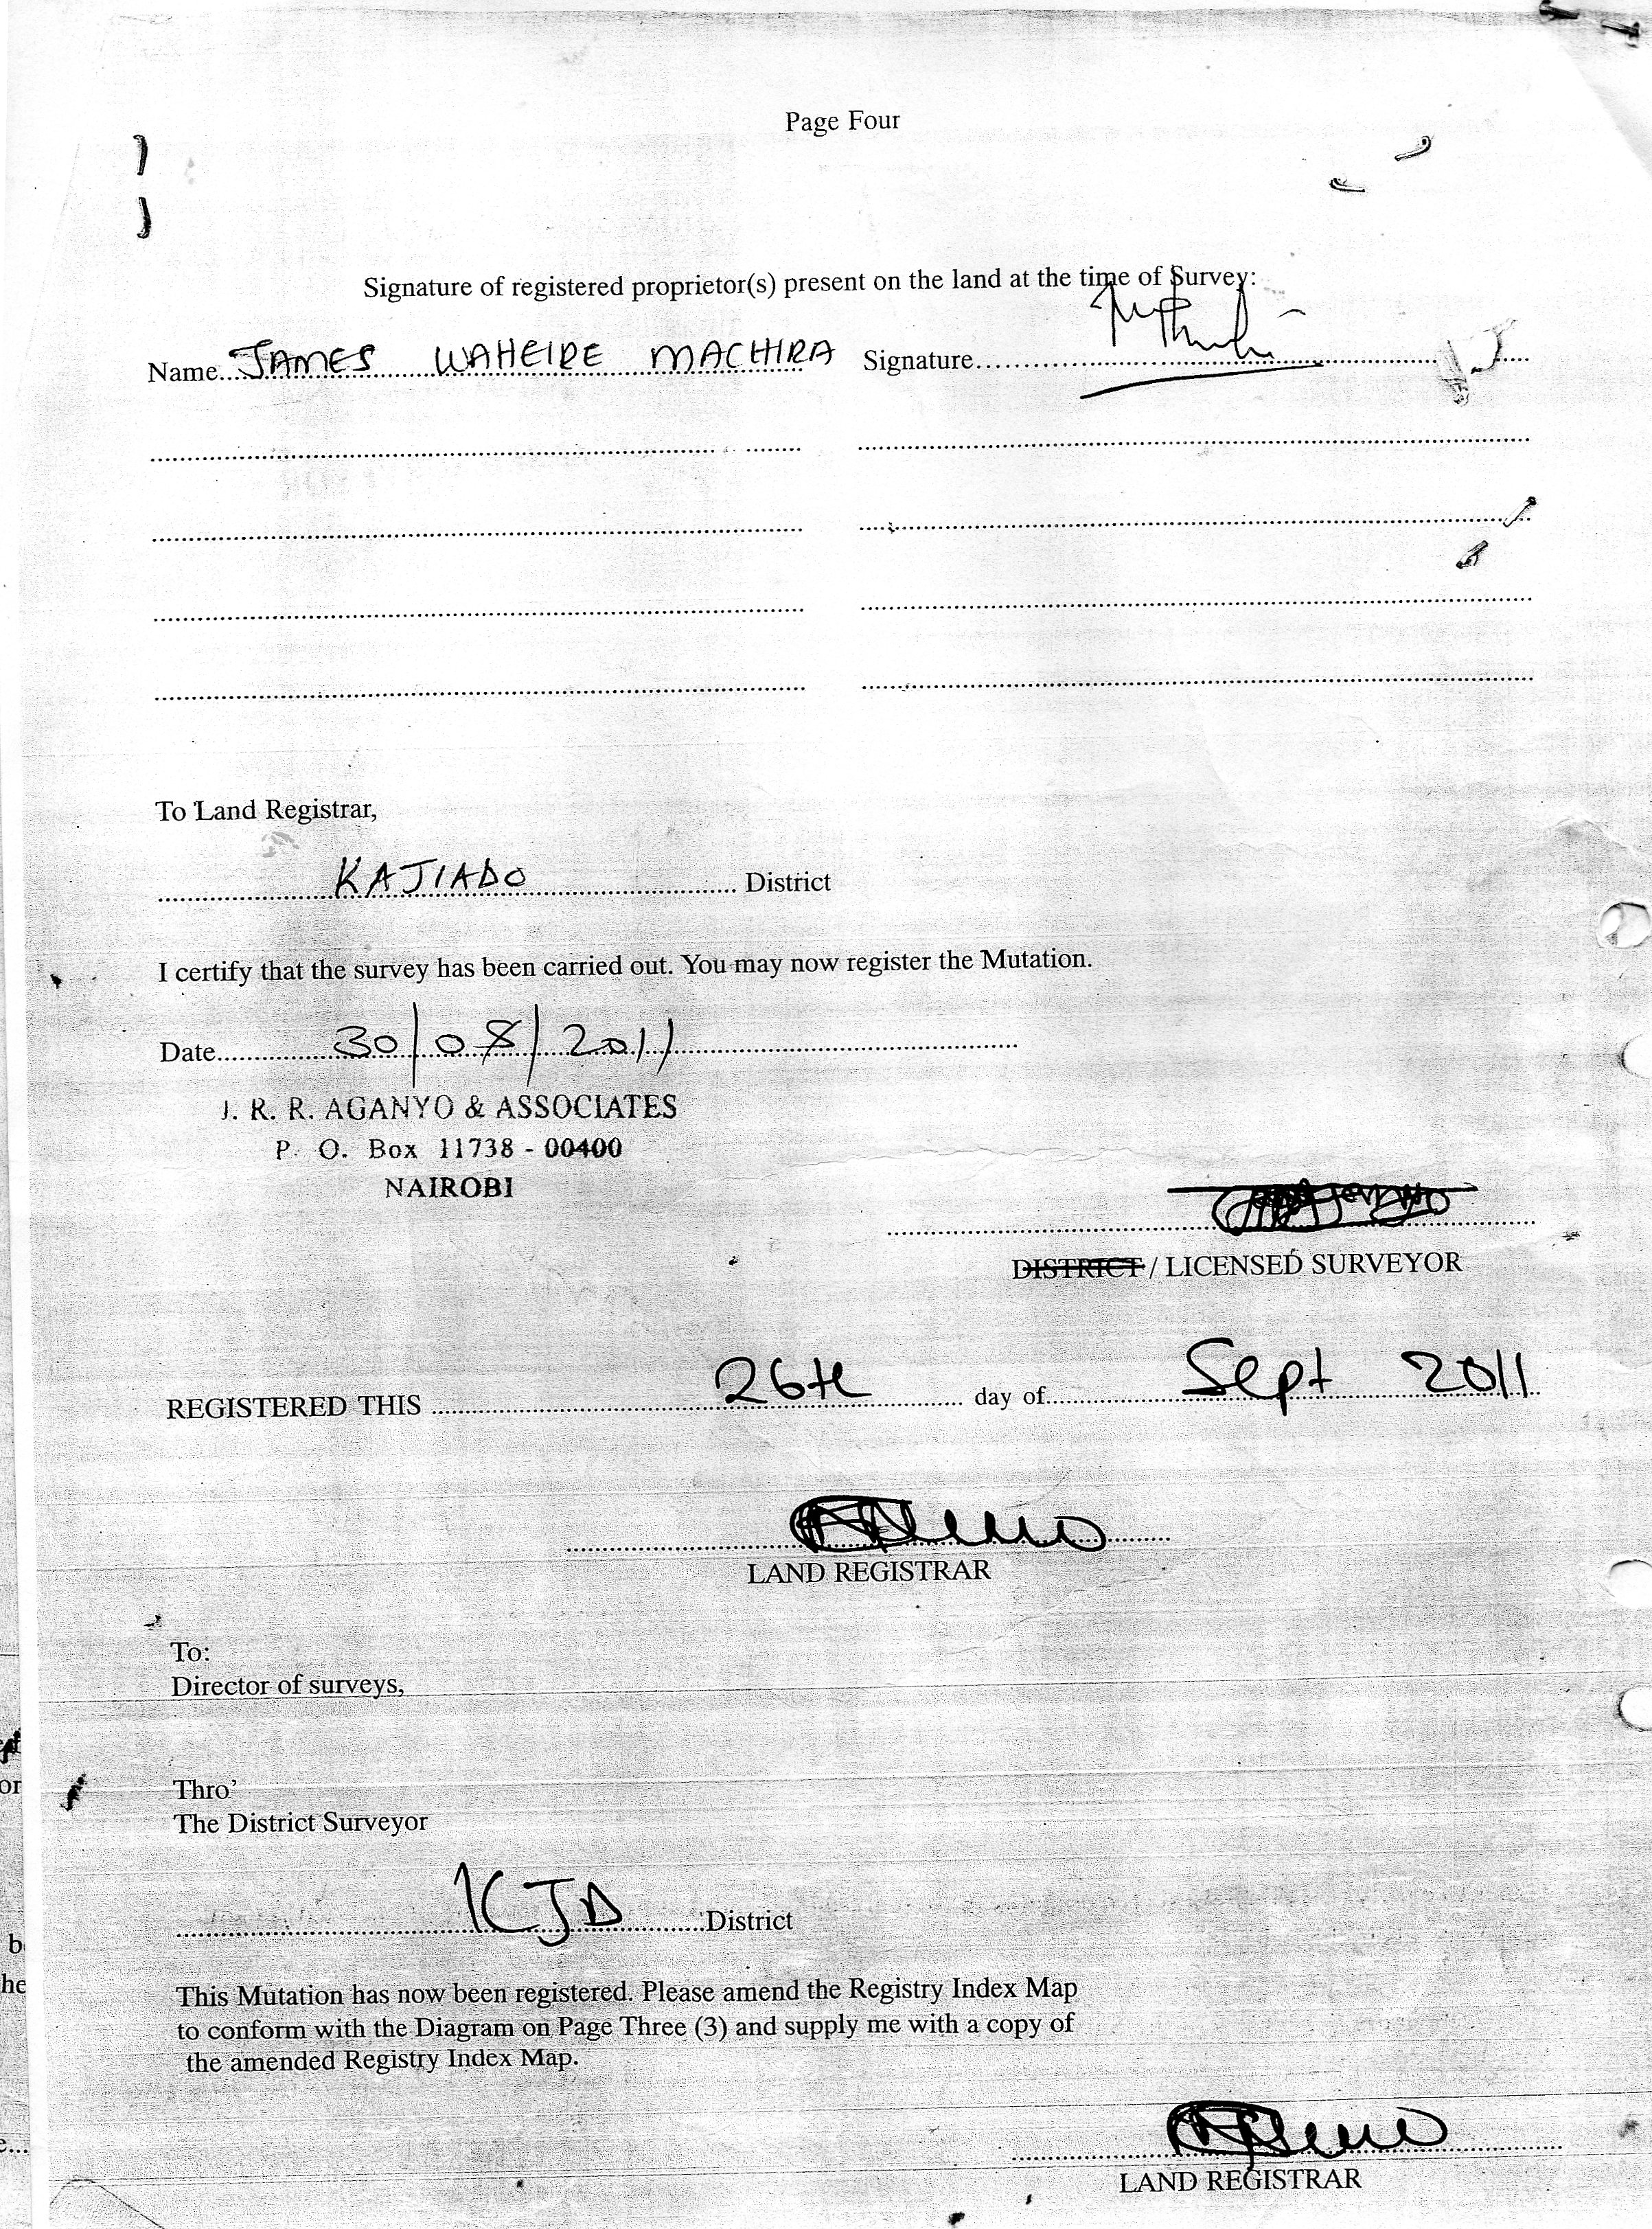 Page Four
Signature of registered proprietor(s) present on the land at the time of Survey:
Name JAMES WAHEIRE MACHIRA Signature
To Land Registrar,
KAJIADO District
I certify that the survey has been carried out. You may now register the Mutation.
Date 30/08/2011
J. R. R. AGANYO & ASSOCIATES
P. O. Box 11738 - 00400
NAIROBI
DISTRICT / LICENSED SURVEYOR
REGISTERED THIS 26th day of Sept 2011
LAND REGISTRAR
To:
Director of surveys,
Thro'
The District Surveyor
KJD District
This Mutation has now been registered. Please amend the Registry Index Map
to conform with the Diagram on Page Three (3) and supply me with a copy of
the amended Registry Index Map.
LAND REGISTRAR